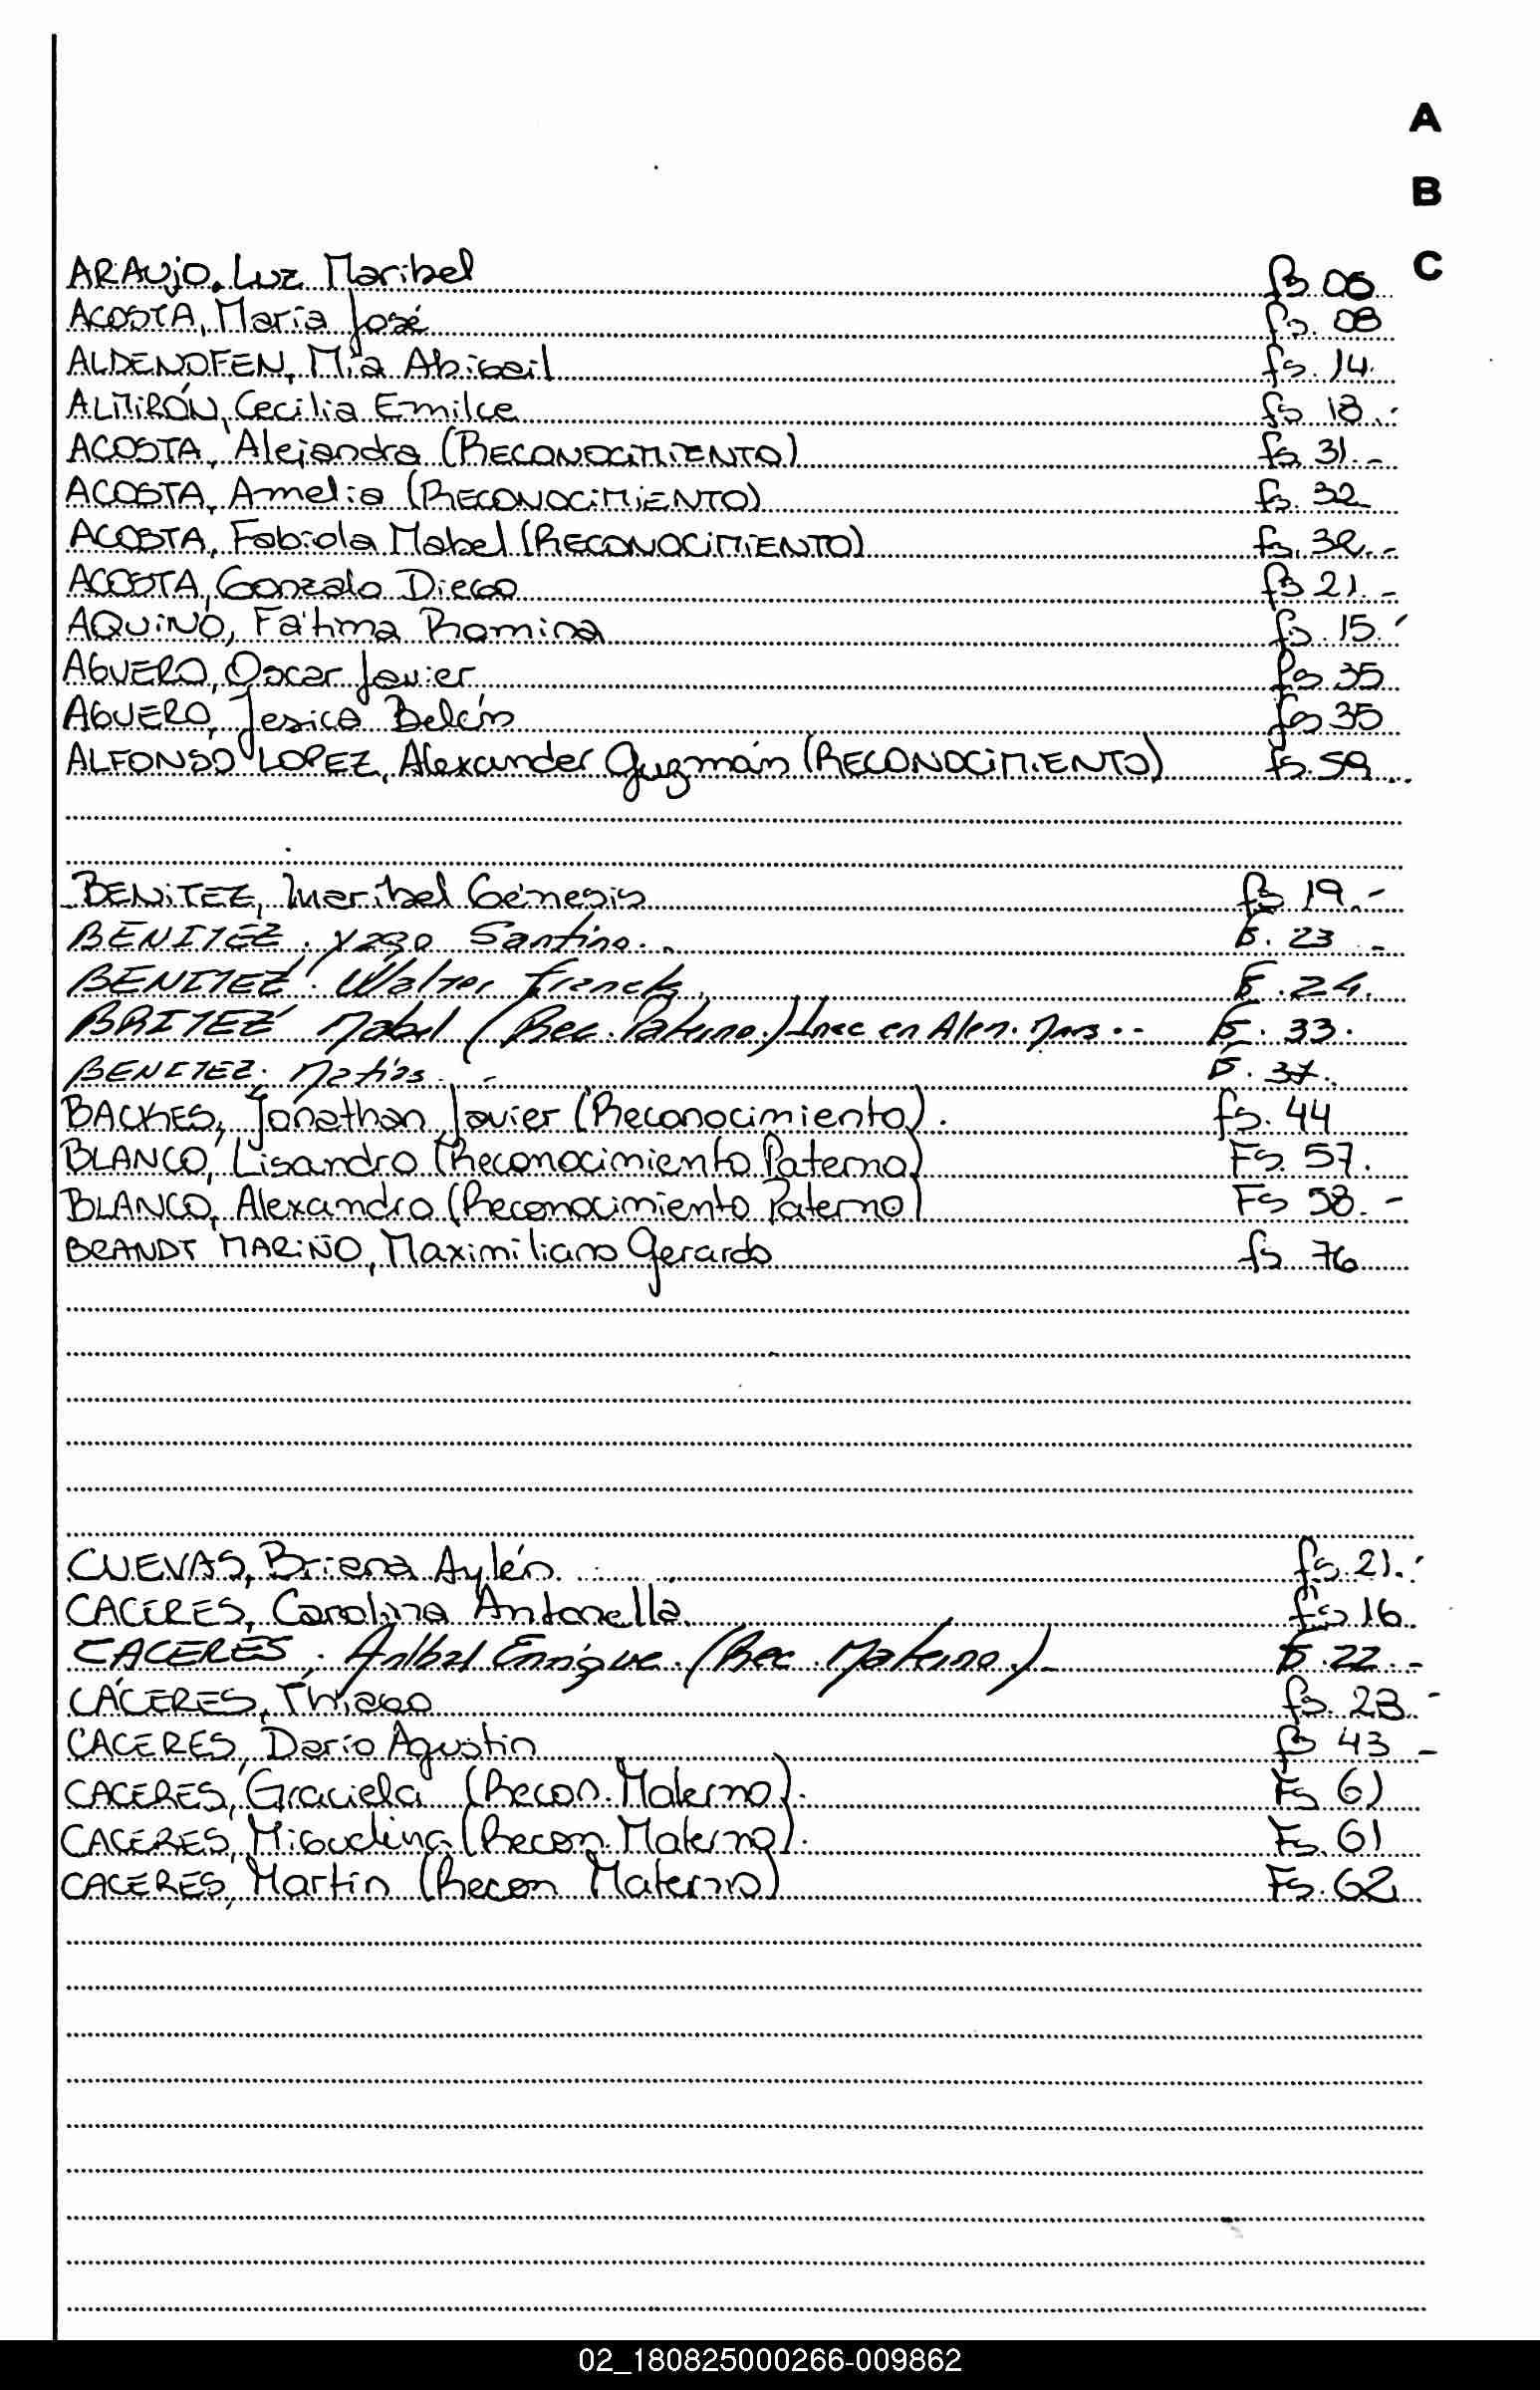 A
B
C
ARAUJO, Luz Maribel fs 06
ACOSTA, María José fs. 08
ALDENOFEN, Mía Abigail fs. 14.
ALMIRÓN, Cecilia Emilce fs 18.-
ACOSTA, Alejandra (RECONOCIMIENTO) fs 31.-
ACOSTA, Amelia (RECONOCIMIENTO) fs. 32
ACOSTA, Fabiola Mabel (RECONOCIMIENTO) fs. 32.-
ACOSTA, Gonzalo Diego fs 21.-
AQUINO, Fátima Romina fs. 15.-
AGUERO, Oscar Javier fs 35
AGUERO, Jesica Belén fs 35
ALFONSO LOPEZ, Alexander Guzmán (RECONOCIMIENTO) fs. 59..
BENITEZ, Maribel Génesis fs 19.-
BENITEZ. Santino. F. 23.-
BENITEZ. Walter Franck. F. 24.
BRITEZ Mabel (Rec. Paterno.) Insc en Alen. F. 33.
BENITEZ. Matías. - F. 37.
BACKES, Jonathan Javier (Reconocimiento). fs. 44
BLANCO, Lisandro (Reconocimiento Paterno) Fs. 57.
BLANCO, Alexandra (Reconocimiento Paterno) Fs 58.-
BRANDT MARIÑO, Maximiliano Gerardo fs 76
CUEVAS, Briena Aylén. fs. 21.-
CACERES, Carolina Antonella. fs 16
CACERES. Anibal Enrique. (Rec. Materno.). F. 22.-
CÁCERES, Thiago fs. 23.-
CACERES, Darío Agustín fs 43.-
CACERES, Graciela (Recon. Materno). Fs 61
CACERES, Miguelina (Recon. Materno). Fs. 61
CACERES, Martín (Recon Materno) Fs. 62
02_180825000266-009862